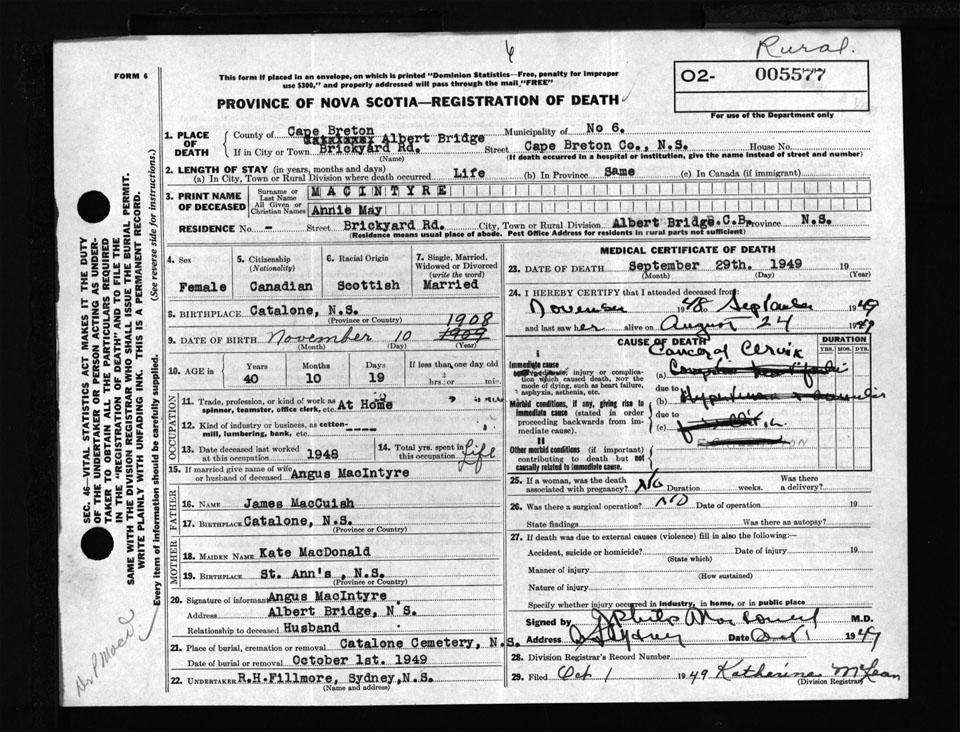 6
Rural.
FORM 6
This form if placed in an envelope, on which is printed "Dominion Statistics—Free, penalty for improper
use $300," and properly addressed will pass through the mail "FREE"
O2- 005577
For use of the Department only
PROVINCE OF NOVA SCOTIA—REGISTRATION OF DEATH
1. PLACE OF DEATH
County of Cape Breton Municipality of No 6.
Albert Bridge
If in City or Town Brickyard Rd. Street Cape Breton Co., N.S. House No.
(Name) (If death occurred in a hospital or institution, give the name instead of street and number)
2. LENGTH OF STAY (in years, months and days)
(a) In City, Town or Rural Division where death occurred Life (b) In Province Same (c) In Canada (if immigrant)
3. PRINT NAME OF DECEASED
Surname or Last Name MACINTYRE
All Given or Christian Names Annie May
RESIDENCE No - Street Brickyard Rd. City, Town or Rural Division Albert Bridge.C.B. Province N.S.
(Residence means usual place of abode. Post Office Address for residents in rural parts not sufficient)
4. Sex
Female
5. Citizenship
(Nationality)
Canadian
6. Racial Origin
Scottish
7. Single, Married,
Widowed or Divorced
(write the word)
Married
8. BIRTHPLACE Catalone, N.S.
(Province or Country)
1908
9. DATE OF BIRTH November 10 1909
(Month) (Day) (Year)
10. AGE in
Years Months Days If less than one day old
40 10 19 hrs. or min.
OCCUPATION
11. Trade, profession, or kind of work as
spinner, teamster, office clerk, etc. At Home
12. Kind of industry or business, as cotton-
mill, lumbering, bank, etc. ----
13. Date deceased last worked
at this occupation 1948
14. Total yrs. spent in
this occupation Life
15. If married give name of wife
or husband of deceased Angus MacIntyre
FATHER
16. NAME James MacCuish
17. BIRTHPLACE Catalone, N.S.
(Province or Country)
MOTHER
18. MAIDEN NAME Kate MacDonald
19. BIRTHPLACE St. Ann's , N.S.
(Province or Country)
20. Signature of informant Angus MacIntyre
Address Albert Bridge, N S.
Relationship to deceased Husband
21. Place of burial, cremation or removal Catalone Cemetery, N.S.
Date of burial or removal October 1st. 1949
22. UNDERTAKER R.H.Fillmore, Sydney,N.S.
(Name and address)
MEDICAL CERTIFICATE OF DEATH
23. DATE OF DEATH September 29th. 1949 19
(Month) (Day) (Year)
24. I HEREBY CERTIFY that I attended deceased from:
November 1948 to September 1949
and last saw her alive on August 24 1949
CAUSE OF DEATH
DURATION
YRS. MOS. DYS.
Cancer of Cervix
I
Immediate cause
disease, injury or complica-
tion which caused death, NOT the
mode of dying, such as heart failure,
asphyxia, asthenia, etc.
(a)
due to
(b)
Morbid conditions, if any, giving rise to
immediate cause (stated in order
proceeding backwards from im-
mediate cause).
due to
(c)
II
Other morbid conditions (if important)
contributing to death but not
causally related to immediate cause.
25. If a woman, was the death
associated with pregnancy? No Duration weeks. Was there
a delivery?
26. Was there a surgical operation? NO Date of operation 19
State findings Was there an autopsy?
27. If death was due to external causes (violence) fill in also the following:—
Accident, suicide or homicide? Date of injury 19
(State which)
Manner of injury
(How sustained)
Nature of injury
Specify whether injury occurred in industry, in home, or in public place
Signed by M.D.
Address Sydney Date Oct 1 1949
28. Division Registrar's Record Number
29. Filed Oct 1 1949 Katherine McLean
(Division Registrar)
SEC. 46—VITAL STATISTICS ACT MAKES IT THE DUTY
OF THE UNDERTAKER OR PERSON ACTING AS UNDER-
TAKER TO OBTAIN ALL THE PARTICULARS REQUIRED
IN THE "REGISTRATION OF DEATH" AND TO FILE THE
SAME WITH THE DIVISION REGISTRAR WHO SHALL ISSUE THE BURIAL PERMIT.
WRITE PLAINLY WITH UNFADING INK. THIS IS A PERMANENT RECORD.
Every item of information should be carefully supplied. (See reverse side for instructions.)